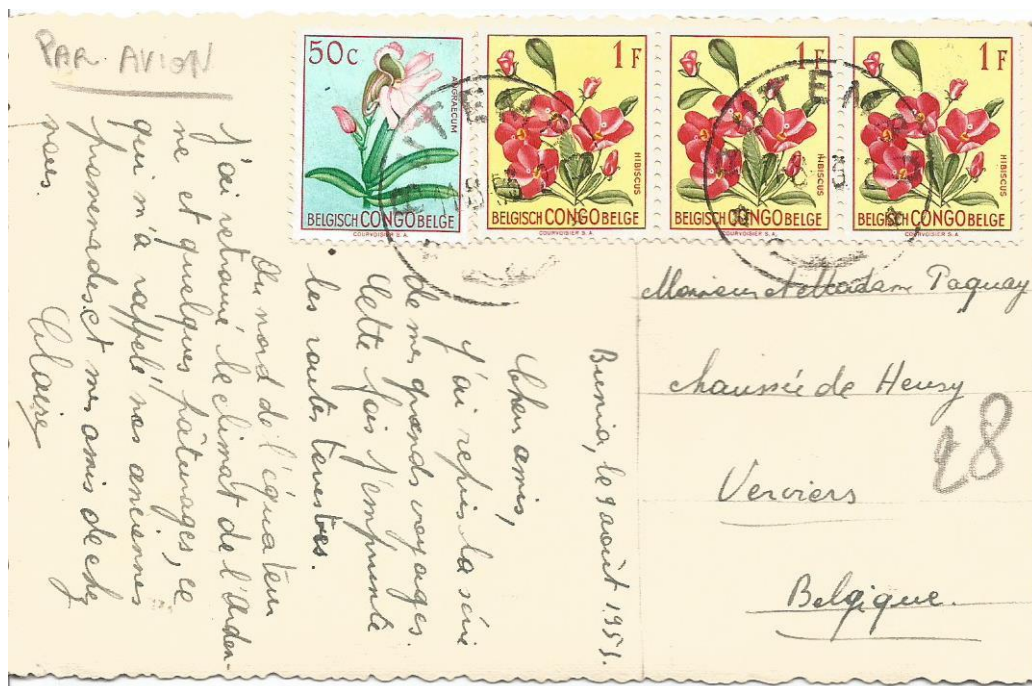 PAR AVION
50c
ANGRAECUM
BELGISCH CONGO BELGE
COURVOISIER S.A.
1F
HIBISCUS
BELGISCH CONGO BELGE
COURVOISIER S.A.
1F
HIBISCUS
BELGISCH CONGO BELGE
COURVOISIER S.A.
1F
HIBISCUS
BELGISCH CONGO BELGE
COURVOISIER S.A.
Monsieur et Madame Paquay
chaussée de Heusy
28
Verviers
Belgique.
Bunia, le 9 août 195
Chers amis,
J'ai repris la série
de mes grands voyages.
Cette fois j'emprunte
les routes terrestres.
Au nord de l'équateur
j'ai retrouvé le climat de l'Arden-
ne et quelques pâturages, ce
qui m'a rappelé nos anciennes
promenades et mes amis de chez
nous.
Claire